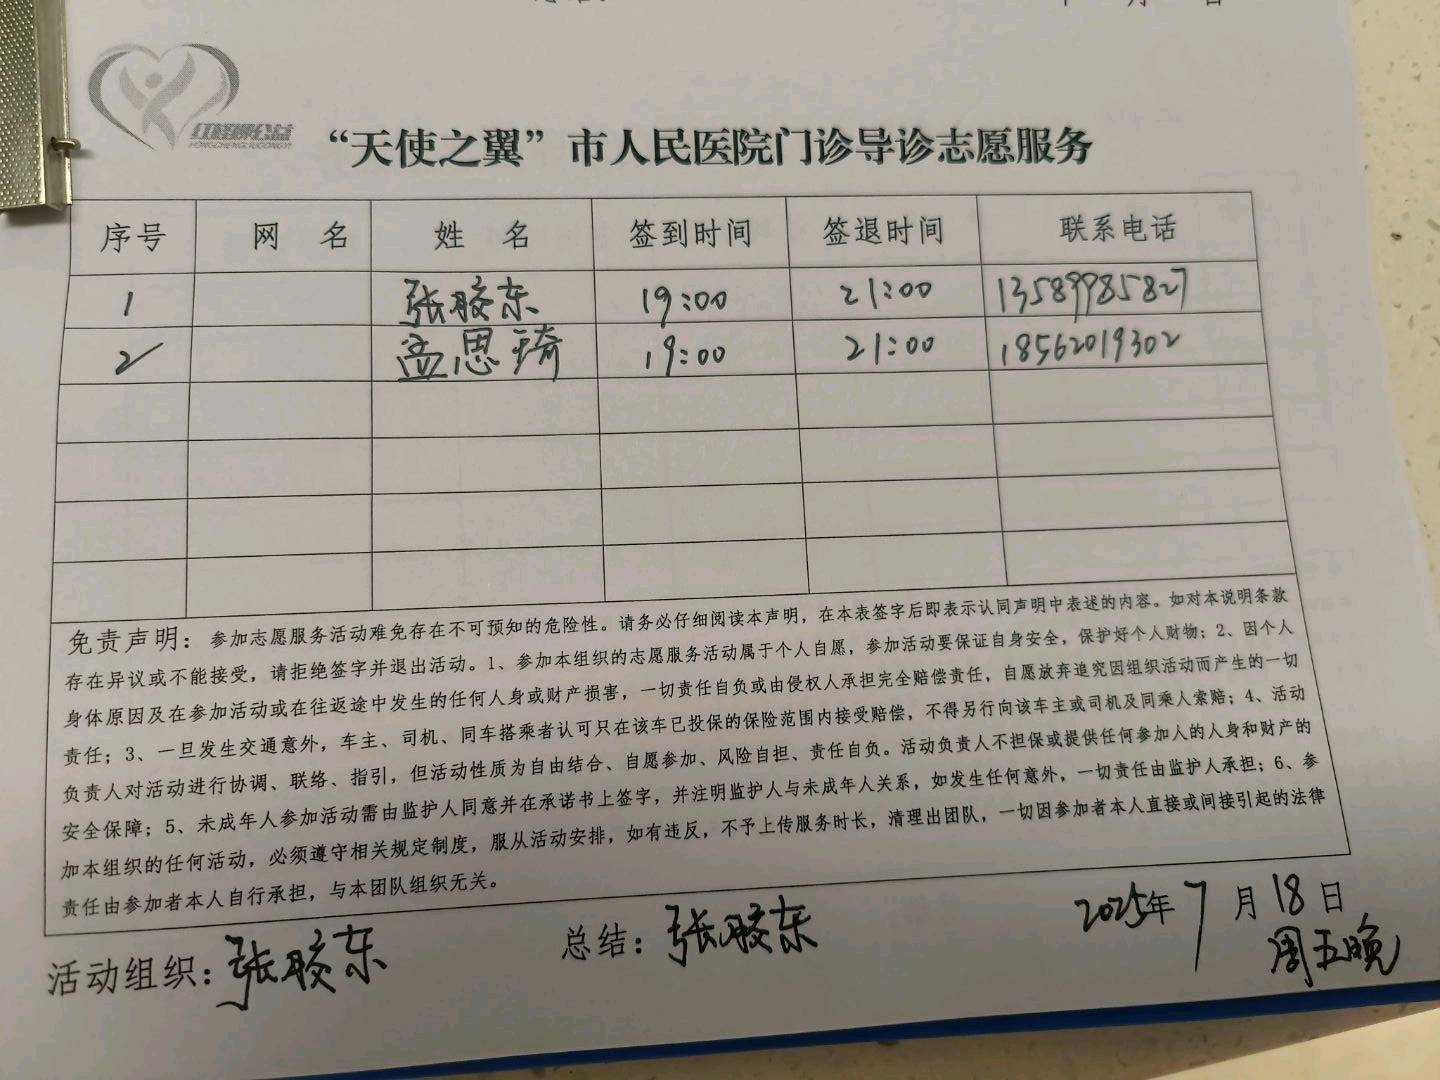 红橙绿公益
HONGCHENGLUGONGYI
“天使之翼”市人民医院门诊导诊志愿服务
序号 网 名 姓 名 签到时间 签退时间 联系电话
1 张胶东 19:00 21:00 13589985827
2 孟思琦 19:00 21:00 18562019302
免责声明：参加志愿服务活动难免存在不可预知的危险性。请务必仔细阅读本声明，在本表签字后即表示认同声明中表述的内容。如对本说明条款
存在异议或不能接受，请拒绝签字并退出活动。1、参加本组织的志愿服务活动属于个人自愿，参加活动要保证自身安全，保护好个人财物；2、因个人
身体原因及在参加活动或在往返途中发生的任何人身或财产损害，一切责任自负或由侵权人承担完全赔偿责任，自愿放弃追究因组织活动而产生的一切
责任；3、一旦发生交通意外，车主、司机、同车搭乘者认可只在该车已投保的保险范围内接受赔偿，不得另行向该车主或司机及同乘人索赔；4、活动
负责人对活动进行协调、联络、指引，但活动性质为自由结合、自愿参加、风险自担、责任自负。活动负责人不担保或提供任何参加人的人身和财产的
安全保障；5、未成年人参加活动需由监护人同意并在承诺书上签字，并注明监护人与未成年人关系，如发生任何意外，一切责任由监护人承担；6、参
加本组织的任何活动，必须遵守相关规定制度，服从活动安排，如有违反，不予上传服务时长，清理出团队，一切因参加者本人直接或间接引起的法律
责任由参加者本人自行承担，与本团队组织无关。
活动组织：张胶东 总结：张胶东 2025年7月18日
周五晚